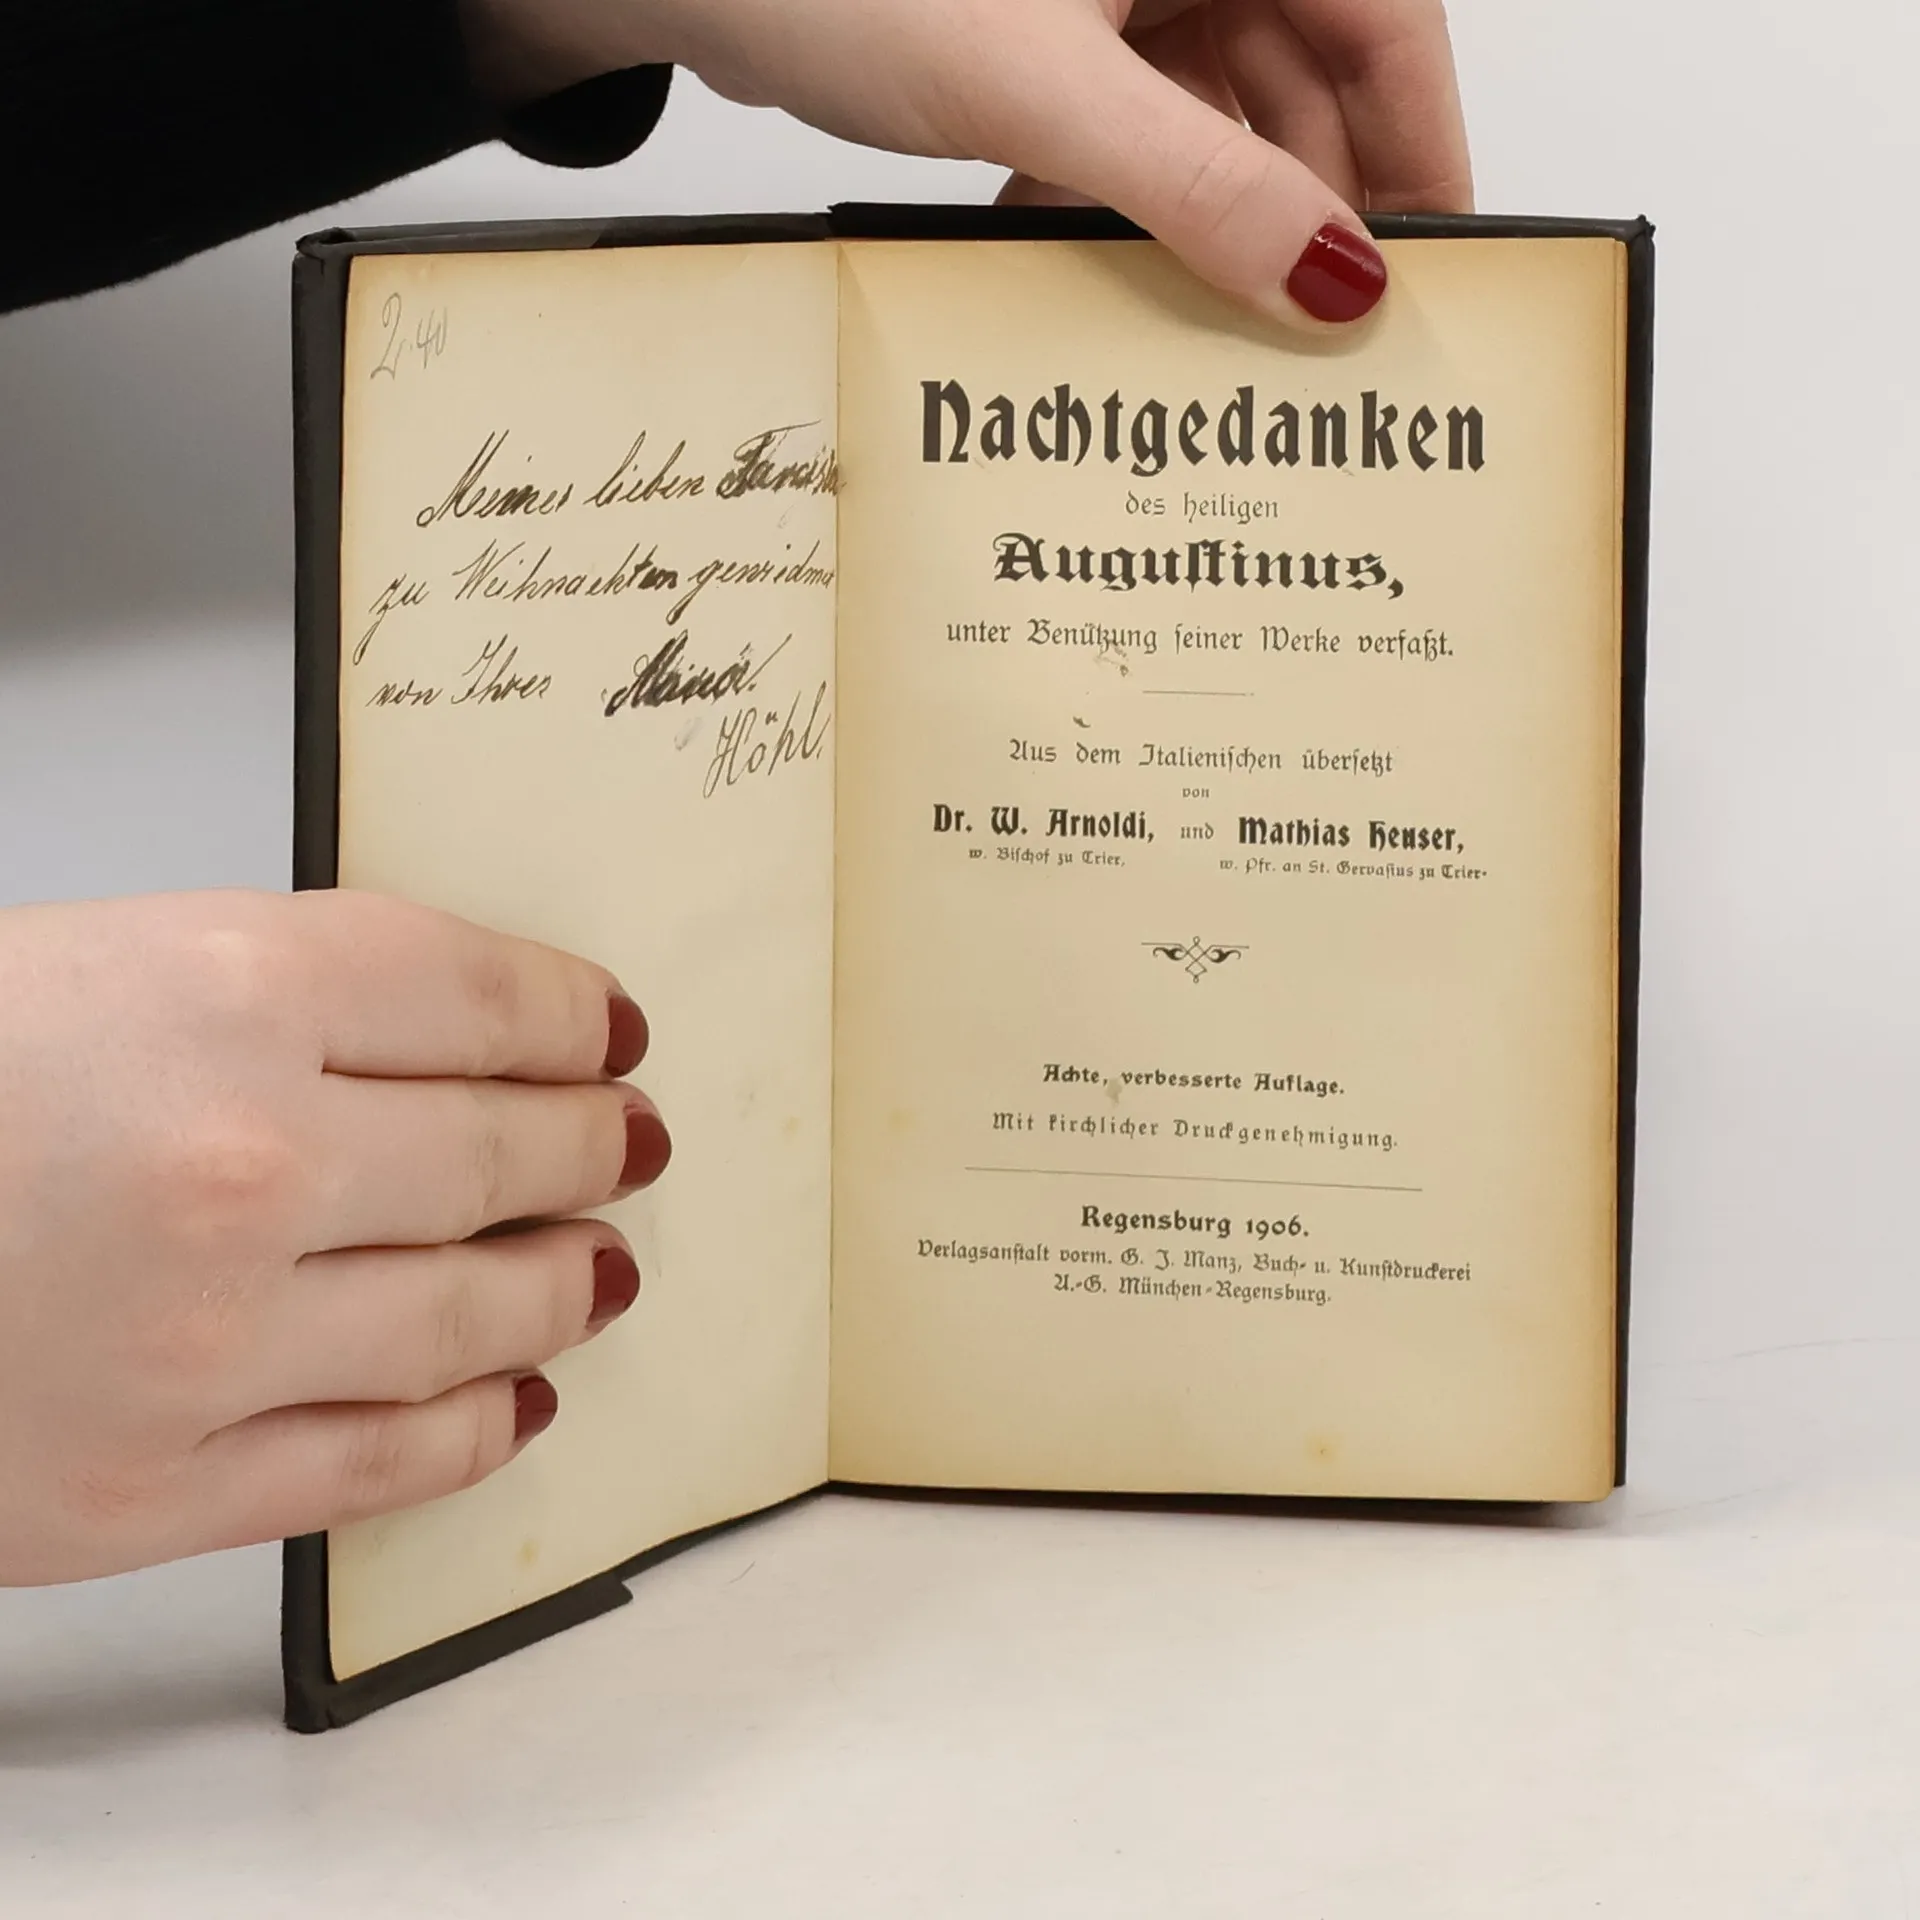 2.40
Meiner lieben
zu Weihnachten gewidmet
von Ihrer
Höhl.
Nachtgedanken
des heiligen
Augustinus,
unter Benützung seiner Werke verfaßt.
Aus dem Italienischen übersetzt
von
Dr. W. Arnoldi, und Mathias Heuser,
w. Bischof zu Trier, w. Pfr. an St. Gervasius zu Trier.
Achte, verbesserte Auflage.
Mit kirchlicher Druckgenehmigung.
Regensburg 1906.
Verlagsanstalt vorm. G. J. Manz, Buch- u. Kunstdruckerei
A.-G. München-Regensburg.